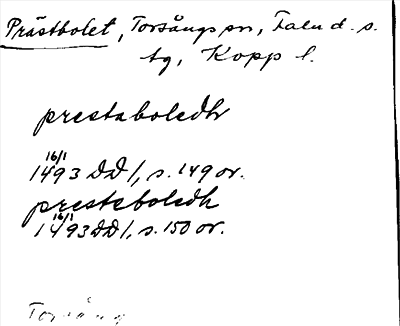 Prästbolet, Torsångs sn, Falu d. s.
tg, Kopp l.
prestaboledh
16/1
1493 DD 1, s. 149 or.
prestaboledh
16/1
1493 DD 1, s. 150 or.
Torsång